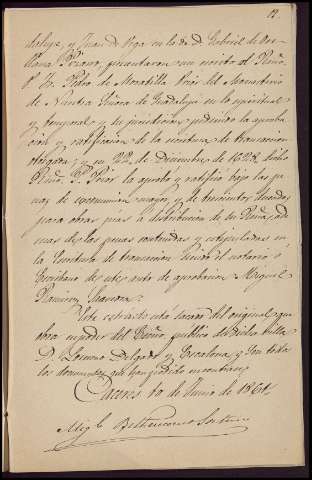 dalupe, y Juan de Vega en la de D. Gabriel de Ore-
llana Pizarro, presentaron un escrito al Rmo.
P. Fr. Pedro de Moratilla Prior del Monasterio
de Nuestra Señora de Guadalupe en lo espiritual
y temporal y su jurisdiccion pidiendo la aproba-
cion y ratificacion de la escritura de transaccion
otorgada; y en 22 de Diciembre de 1628 dicho
Rmo. P. Prior la aprobó y ratificó bajo las pe-
nas de excomunion mayor y de trescientos ducados
para obras pias á distribucion de su Rma., ade-
mas de las penas contenidas y estipuladas en
la Escritura de transaccion siendo el notario ó
Escribano de este auto de aprobacion Miguel
Ramirez
Este estracto está sacado del original que
obra en poder del Escno. público de dicha villa
D. Lorenzo Delgado y Escalona, y son todos
los documentos que han podido encontrarse
Caceres 10 de Junio de 1861.
Migl.